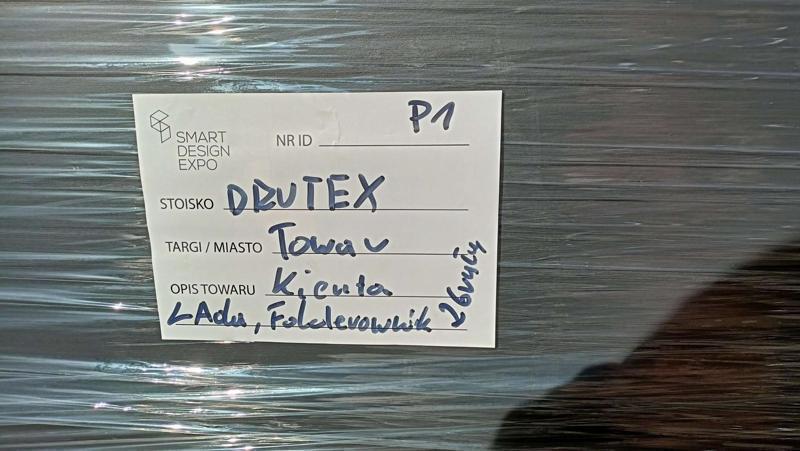 P1
SMART
DESIGN
EXPO
NR ID
STOISKO DRUTEX
TARGI / MIASTO Towar
OPIS TOWARU Kienta
LAda, Folderownik